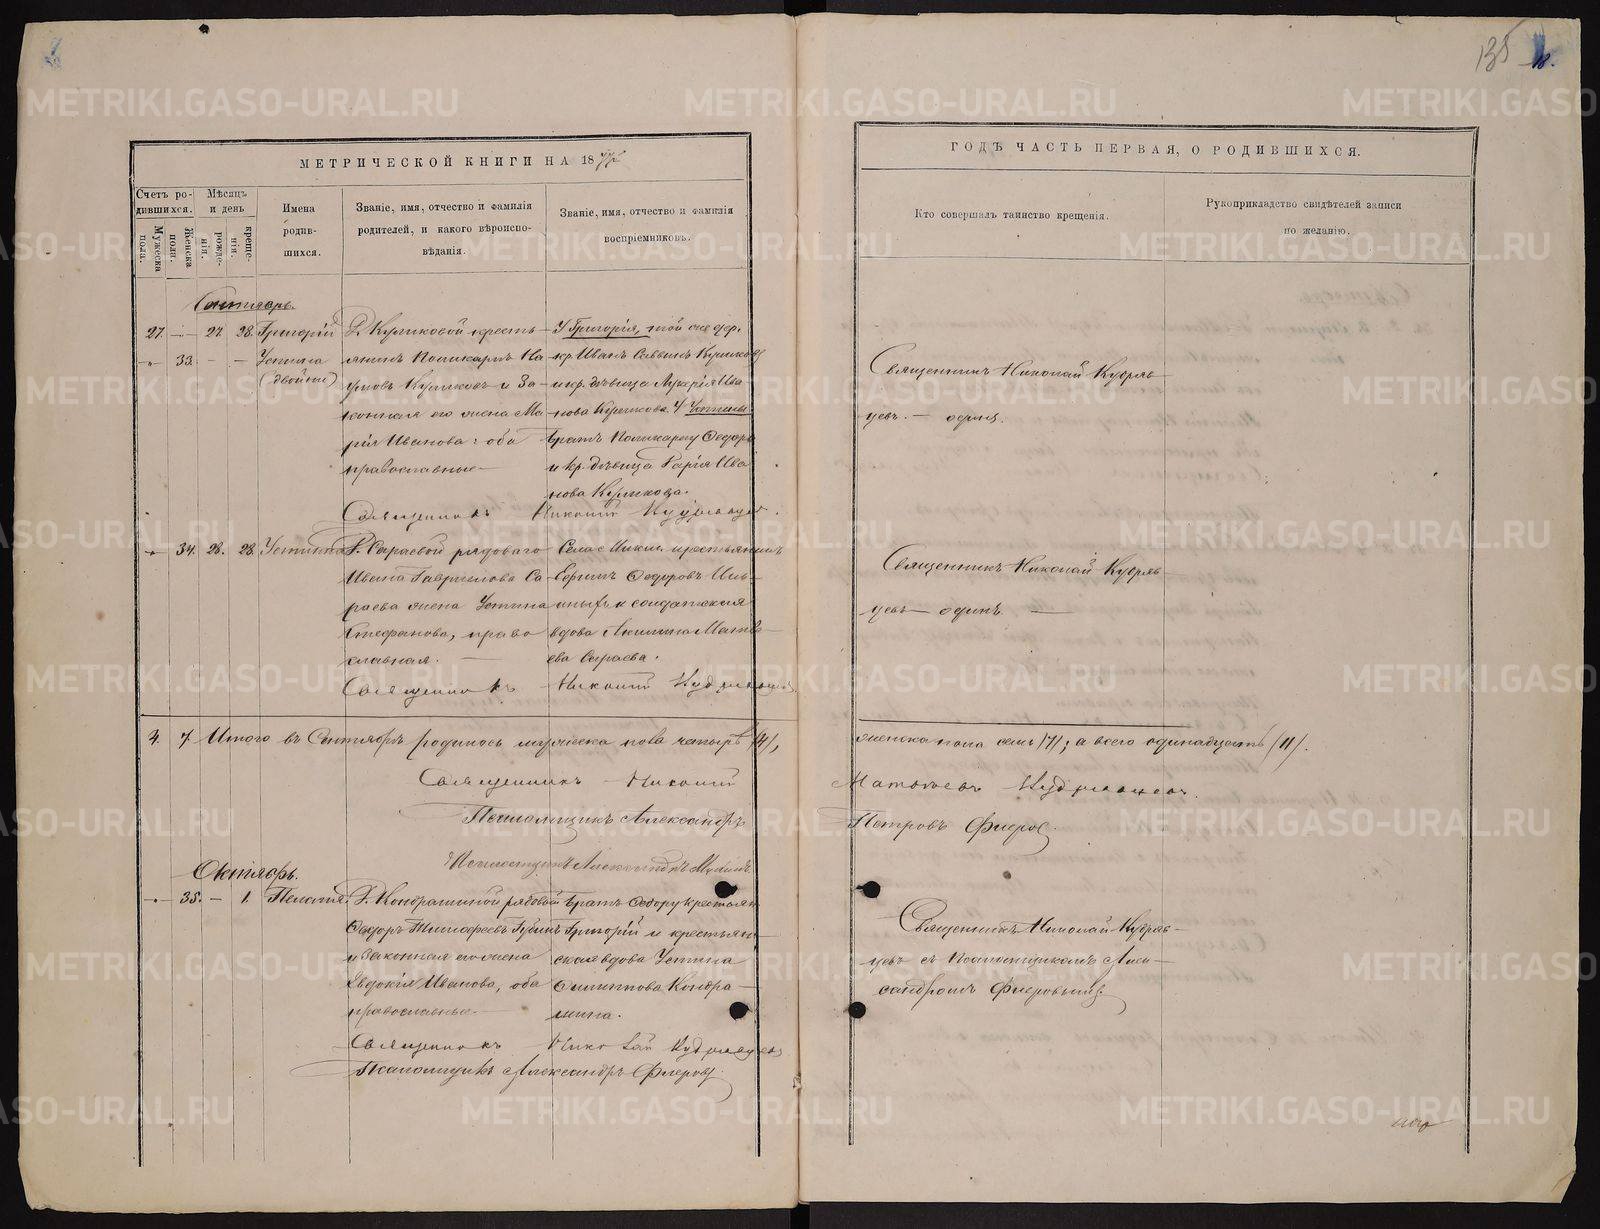 135
МЕТРИЧЕСКОЙ КНИГИ НА 18
ГОДЪ ЧАСТЬ ПЕРВАЯ, О РОДИВШИХСЯ.
Счетъ родившихся.
Мужеска пола.
Женска пола.
Мѣсяцъ и день
рожденія.
крещенія.
Имена родившихся.
Званіе, имя, отчество и фамилія
родителей, и какого вѣроиспо-
вѣданія.
Званіе, имя, отчество и фамилія
воспріемниковъ.
Кто совершалъ таинство крещенія.
Рукоприкладство свидѣтелей записи
по желанію.
Сентябрь.
27. 27. 28. Григорій
33. Устина
(двойни)
Д. Куликовой кресть-
янинъ Поликарпъ На
умовъ Куликовъ и За-
конная его жена Ма
рія Иванова: оба
православные
У Григорія, той же дер.
кр. Иванъ Саввинъ Куликовъ
и кр. дѣвица Лукерія Ива
нова Куликова. У Устины
братъ Поликарпу Ѳедоръ
и кр. дѣвица Ива
нова Куликова.
Священникъ Николай Кудряв
цевъ. — одинъ.
Священникъ Николай Кудрявцевъ.
34. 28. 28. Устина
Д. Сыраевой рядоваго
Ивана Гаврилова Сы
раева жена Устина
Стефанова, право
славная.
Села крестьянинъ
Ефимъ Ѳедоровъ
и солдатская
вдова Акилина Матвѣ
ева Сыраева.
Священникъ Николай Кудряв
цевъ — одинъ.
Священникъ Николай Кудрявцевъ
4. 7. Итого въ Сентябрѣ родилось мужеска пола четыре /4/,
женска пола семь /7/; а всего одинадцать /11/.
Священникъ Николай
Матвѣевъ Кудрявцевъ.
Псаломщикъ Александръ
Петровъ Флеровъ.
Псаломщикъ Александръ
Октябрь.
35. — 1. Пелагія.
Д. Кондрашиной рядовой
Ѳедоръ Тимофеевъ
и Законная его жена
Евдокія Иванова, оба
православные.
Братъ Ѳедору крестьян
Григорій и крестьян-
ская вдова Устина
Филиппова Кондра-
шина.
Священникъ Николай Кудряв-
цевъ съ псаломщикомъ Алек-
сандромъ Флеровымъ.
Священникъ Николай Кудрявцевъ
Псаломщикъ Александръ Флеровъ.
METRIKI.GASO-URAL.RU